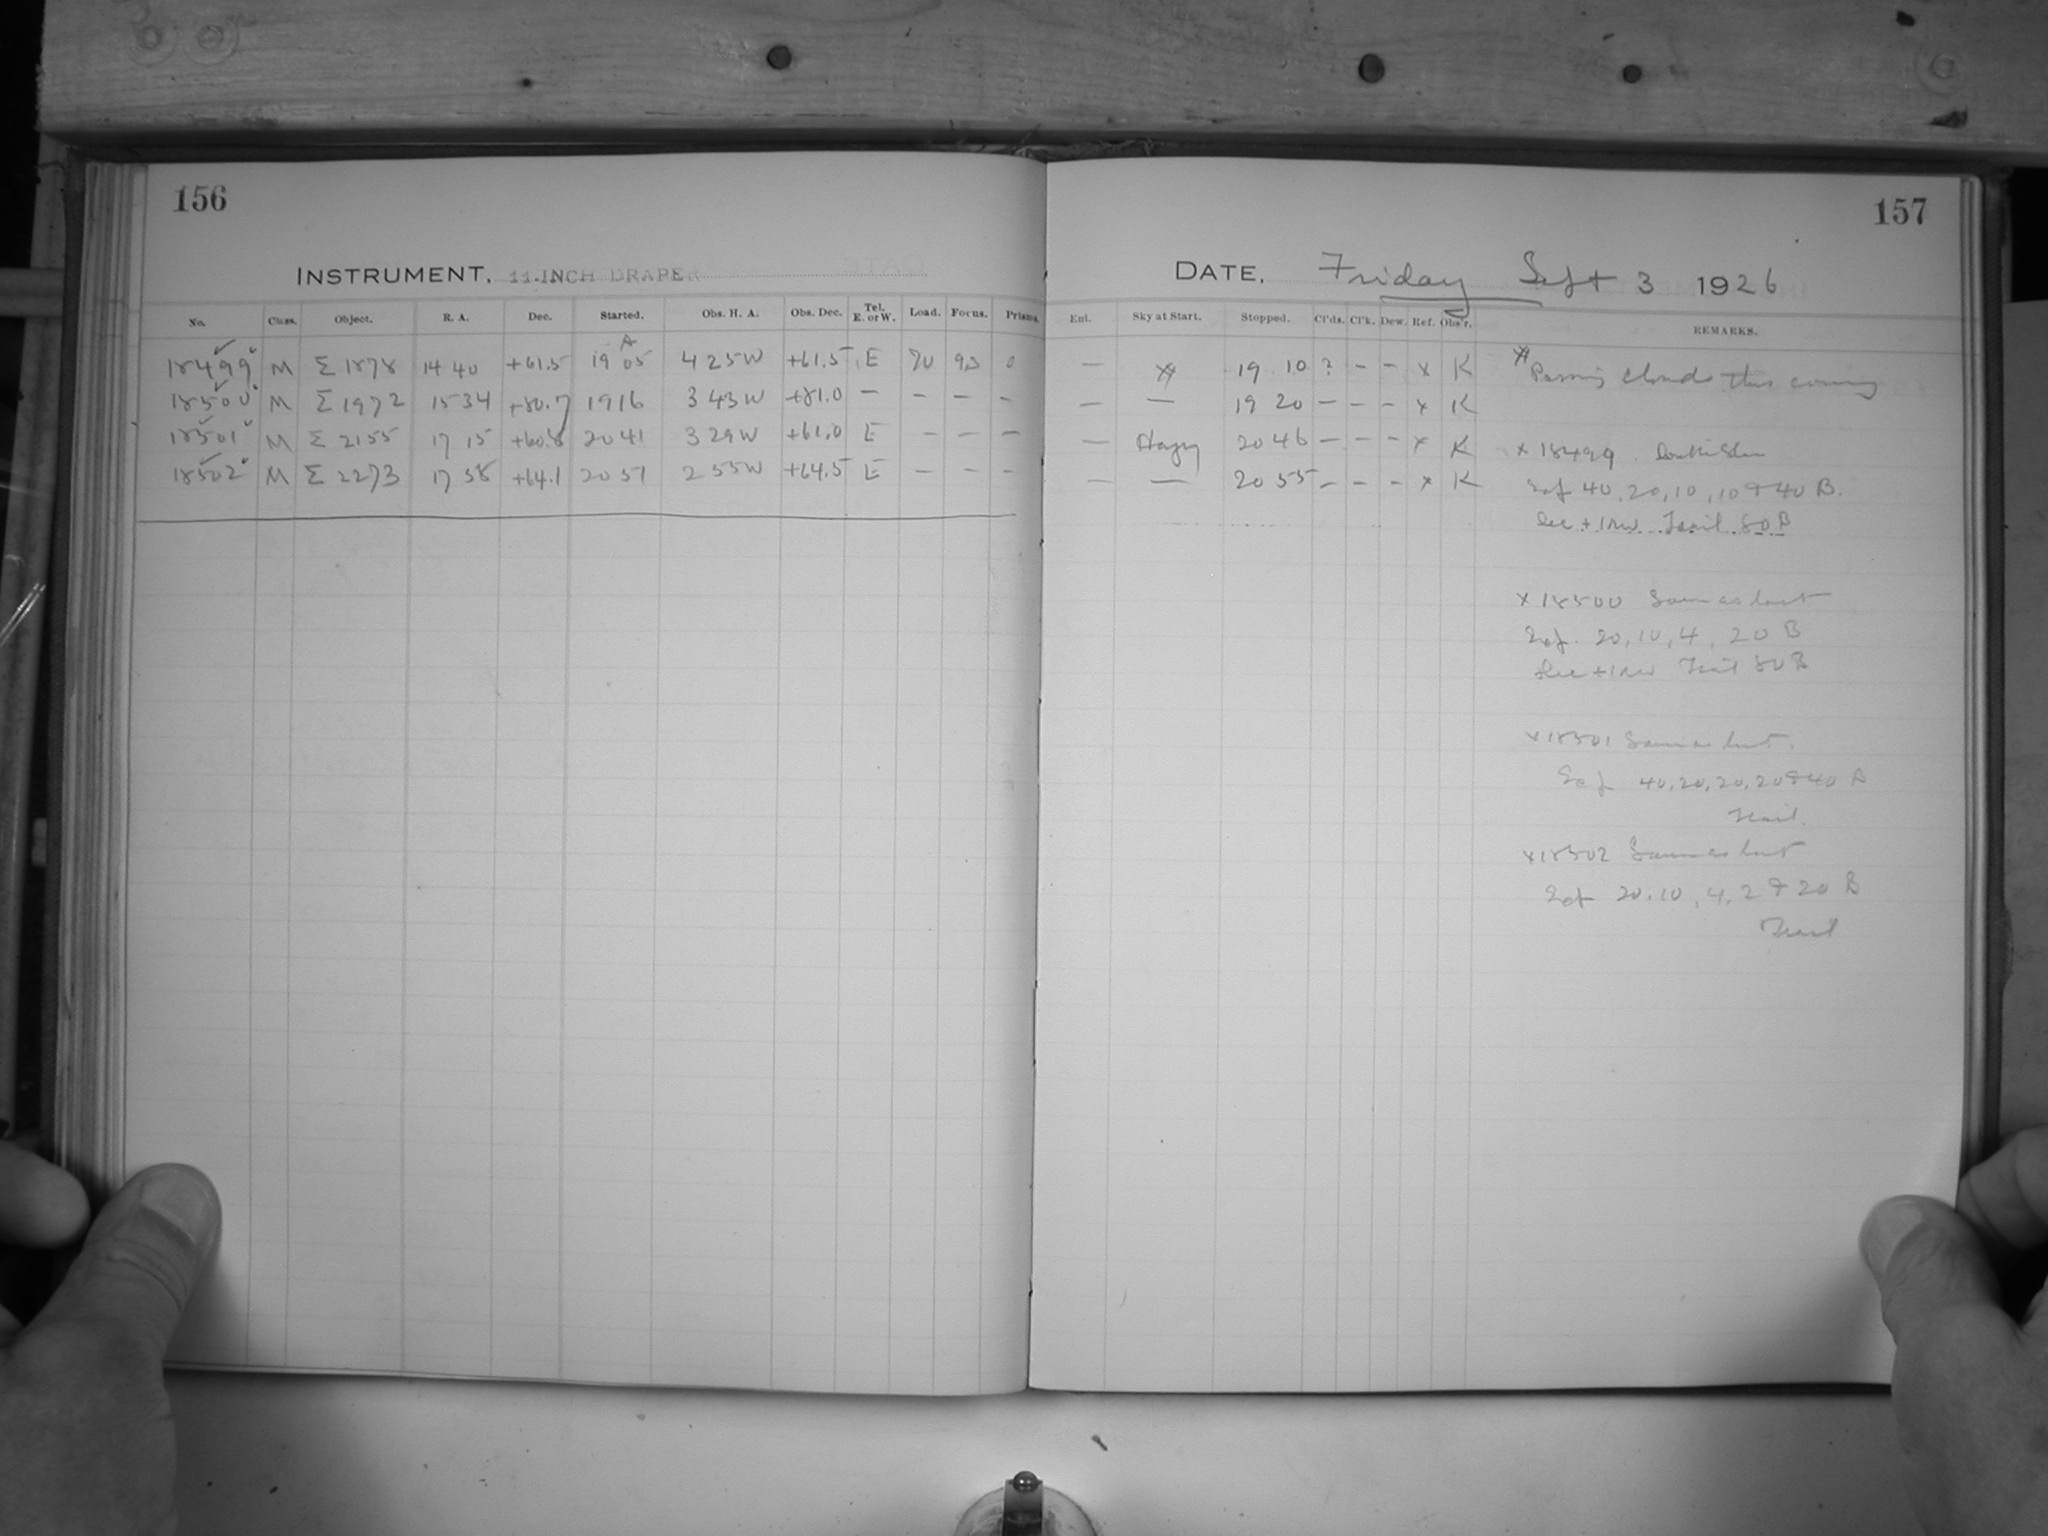 156
INSTRUMENT. 11-INCH DRAPER
No. Class. Object. R. A. Dec. Started. Obs. H. A. Obs. Dec. Tel. E. or W. Load. Focus. Prisms.
18499 M Σ 1878 14 40 +61.5 19 05 A 4 25 W +61.5 E 70 93 0
18500 M Σ 1972 15 34 +80.7 19 16 3 43 W +81.0 — — — —
18501 M Σ 2155 17 15 +60.8 20 41 3 29 W +61.0 E — — —
18502 M Σ 2273 17 58 +64.1 20 51 2 55 W +64.5 E — — —
157
DATE. Friday Sept 3 1926
Enl. Sky at Start. Stopped. Cl'ds. Cl'k. Dew. Ref. Obs'r. REMARKS.
— * 19 10 ? — — x K * Passing clouds this evening
— — 19 20 — — — x K
— Hazy 20 46 — — — x K x 18499
40, 20, 10, 10 & 40 B.
— — 20 55 — — — x K
Trail 80 B
x 18500 Same as last
20, 10, 4, 20 B
Trail 80 B
x 18501 Same as last.
40, 20, 20, 20 & 40 B
Trail.
x 18502 Same as last
20, 10, 4, 2 & 20 B
Trail